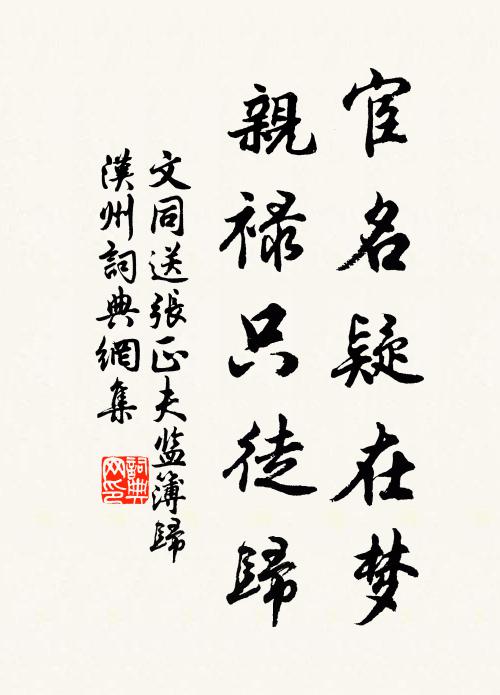 宦名疑在梦
親禄只徒歸
文同送張正夫监簿歸
漢州詞典網集
詞典网印